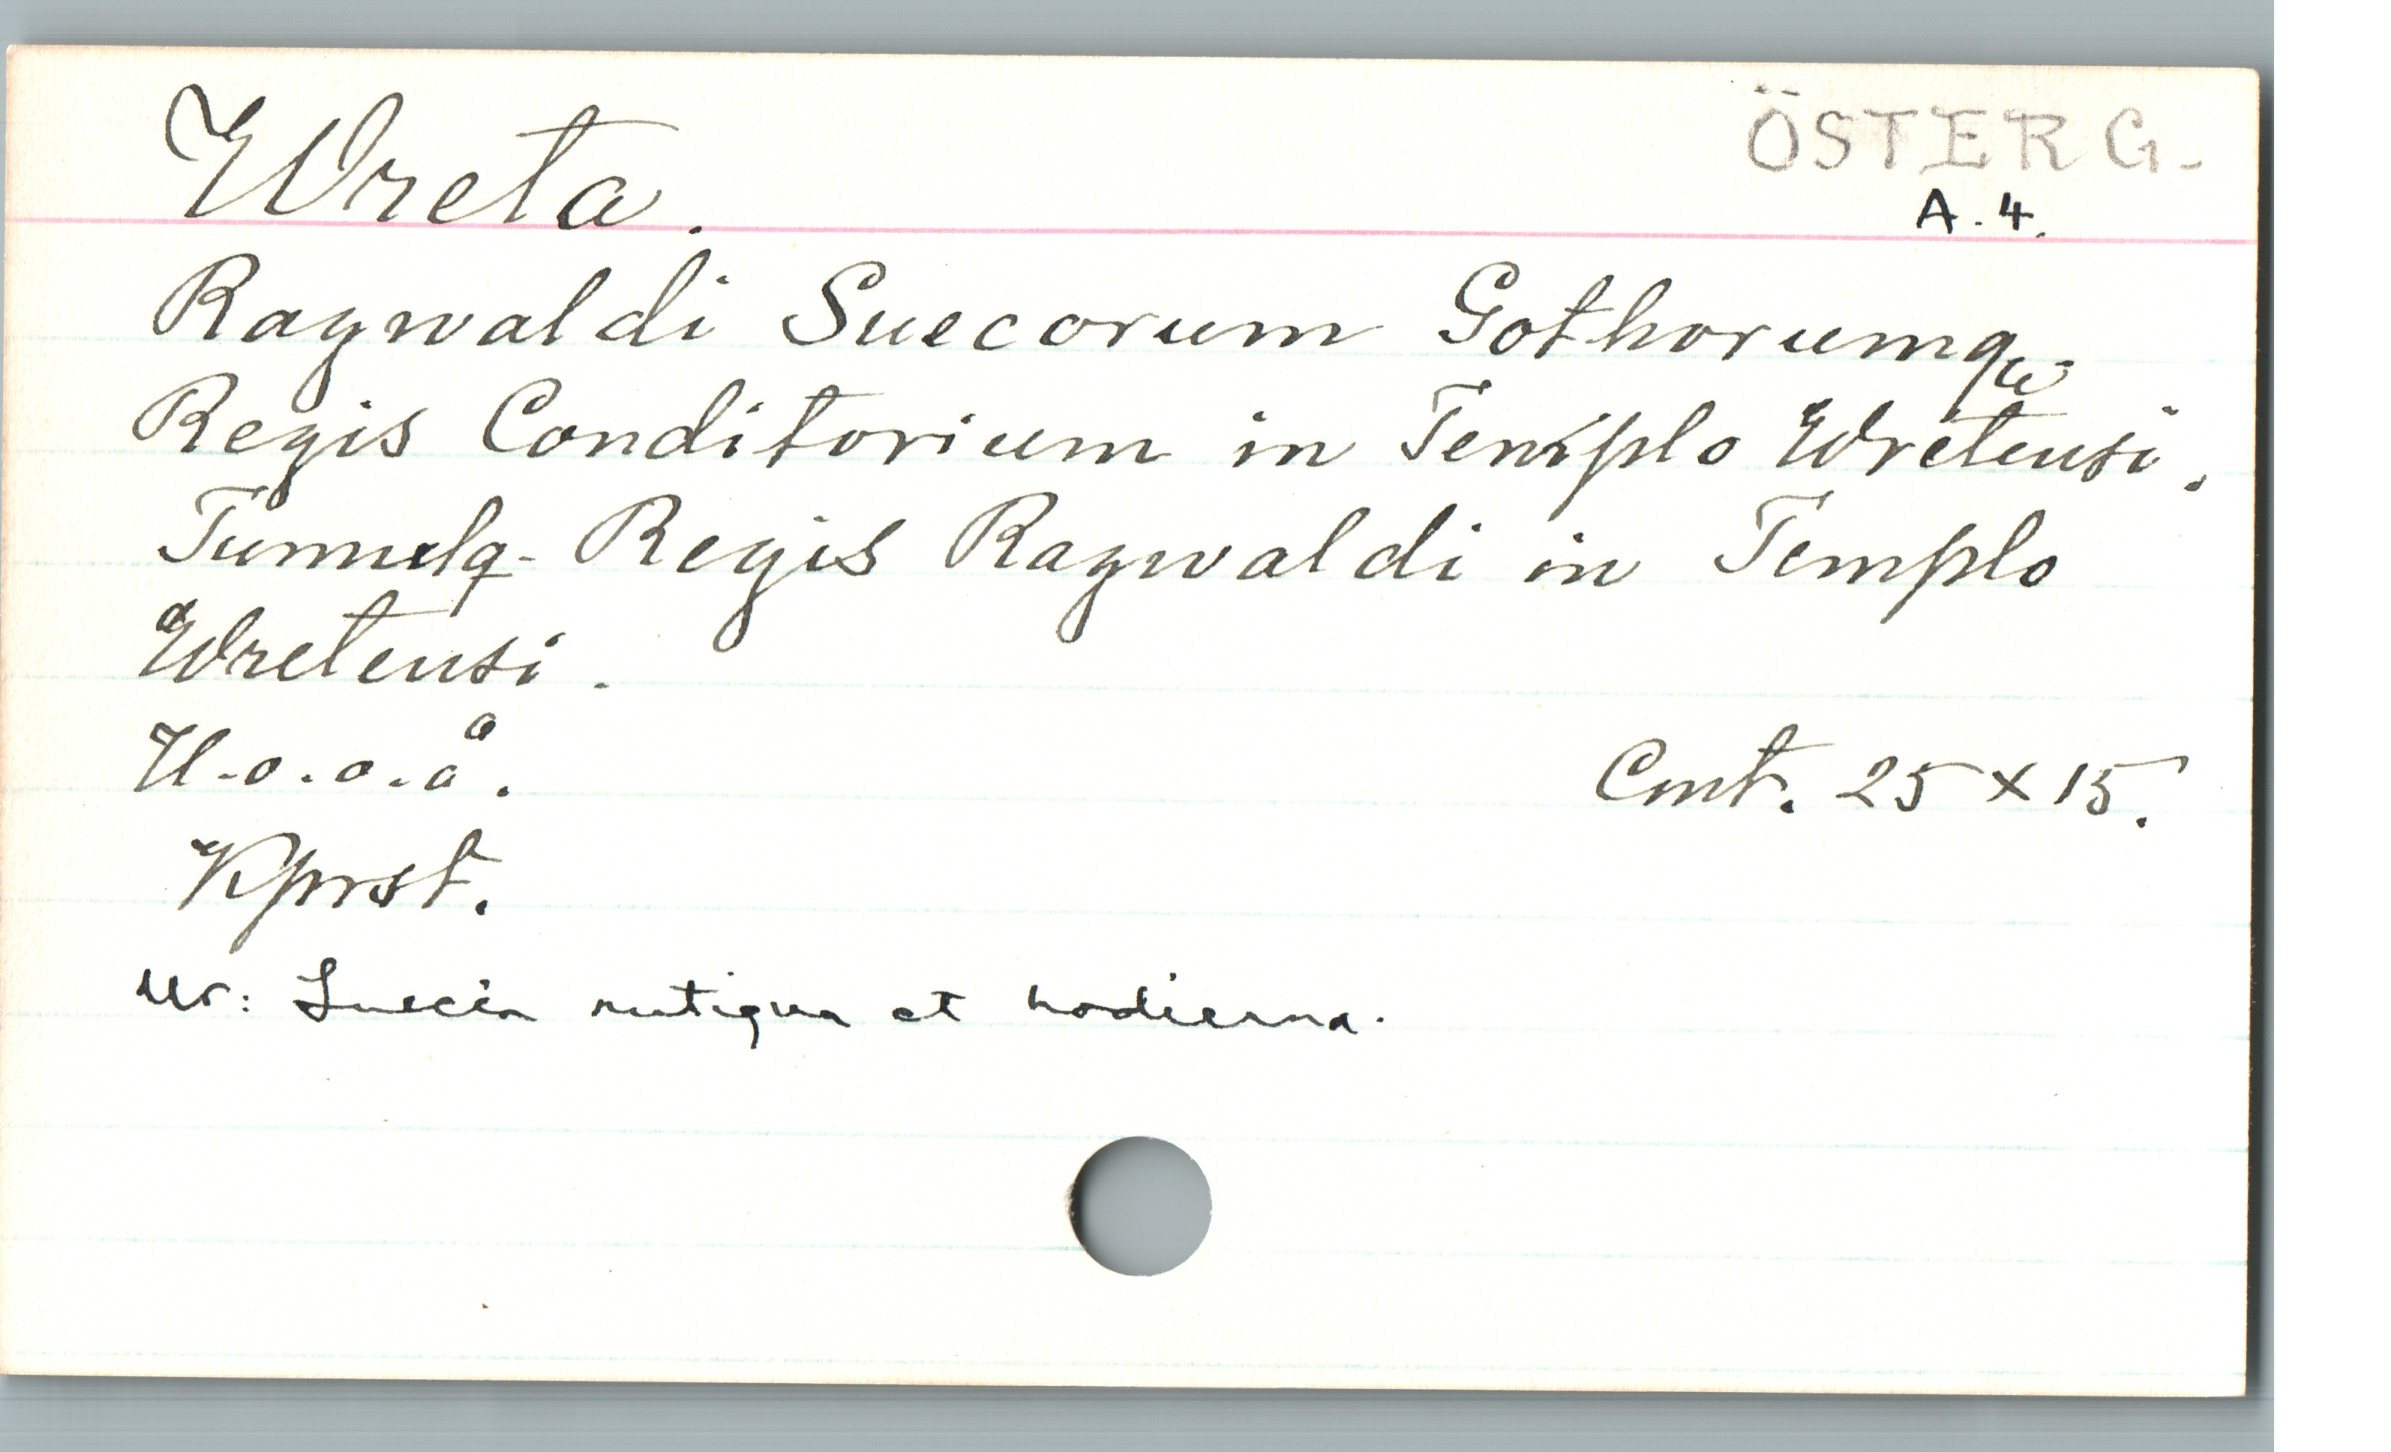 Wreta.
ÖSTERG.
A.4.
Ragwaldi Suecorum Gothorumque
Regis Conditorium in Templo Wretensi.
Tumulq- Regis Ragwaldi in Templo
Wretensi.
U.o.o.å.
Cmt. 25 x 15.
Kprst.
Ur: Suecia antiqua et hodierna.